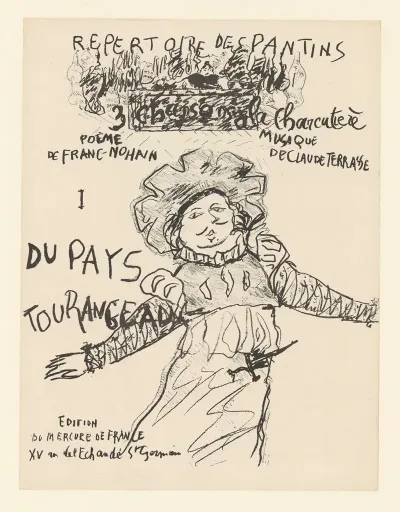 REPERTOIRE DES PANTINS
3 chansons à la Charcutière
POÈME
DE FRANC-NOHAIN
MUSIQUE
DE CLAUDE TERRASSE
I
DU PAYS
TOURANGEAU
EDITION
DU MERCURE DE FRANCE
XV rue de l'Echaudé St Germain